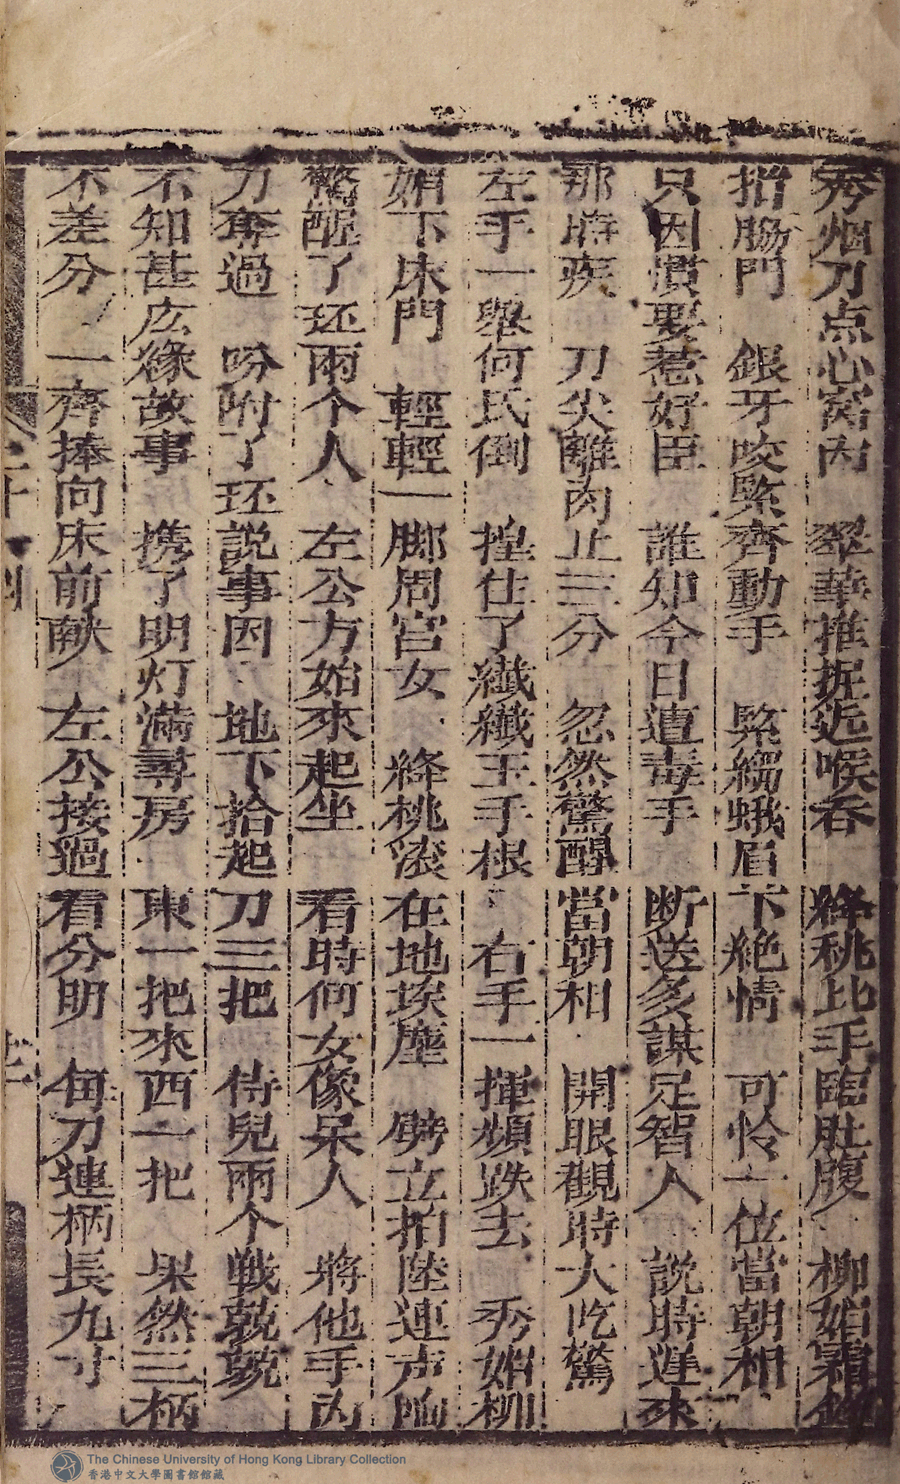 秀烟刀点心窝内　翠華推捉近喉吞　絳桃比手臨肚腹　柳娟霜劍
指腸門　銀牙咬緊齊動手　緊縐蛾眉下絕情　可怜一位當朝相
只因慣要惹奸臣　誰知今日遭毒手　断送多謀足智人　説時遲來
那時疾　刀尖離肉止三分　忽然驚醒當朝相　開眼觀時大吃驚
左手一舉何氏倒　捏住了纖纖玉手根　右手一揮頻跌去　秀娟柳
娟下床門　輕輕一脚周宮女　絳桃滚在地埃塵　劈立拍陸連声响
驚醒了环兩个人　左公方始來起坐　看時何女像呆人　將他手内
刀奪過　吩附了环説事因　地下拾起刀三把　侍兒兩个戰兢兢
不知甚広緣故事　携了明灯满尋房　東一把來西一把　果然三柄
不差分　一齊捧向床前献　左公接過看分明　每刀連柄長九寸
二十
The Chinese University of Hong Kong Library Collection
香港中文大學圖書館館藏